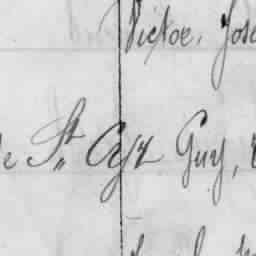 Victoe, Jose
de St Cyr Guy,